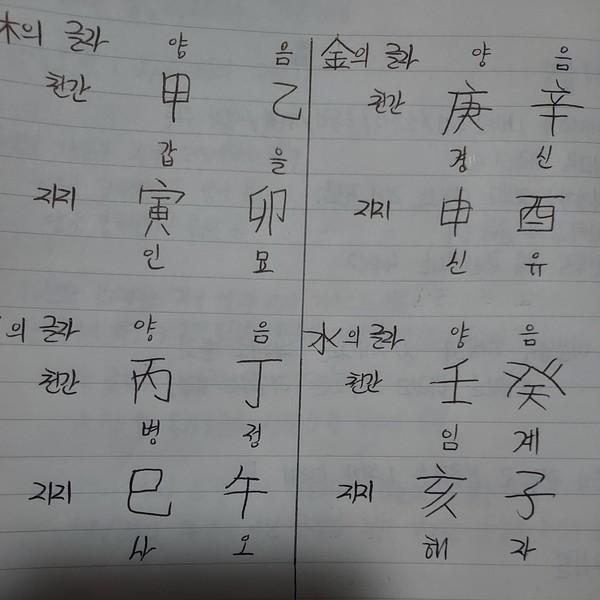 木의 글자 양 음
천간 甲 乙
갑 을
지지 寅 卯
인 묘
金의 글자 양 음
천간 庚 辛
경 신
지지 申 酉
신 유
의 글자 양 음
천간 丙 丁
병 정
지지 巳 午
사 오
水의 글자 양 음
천간 壬 癸
임 계
지지 亥 子
해 자